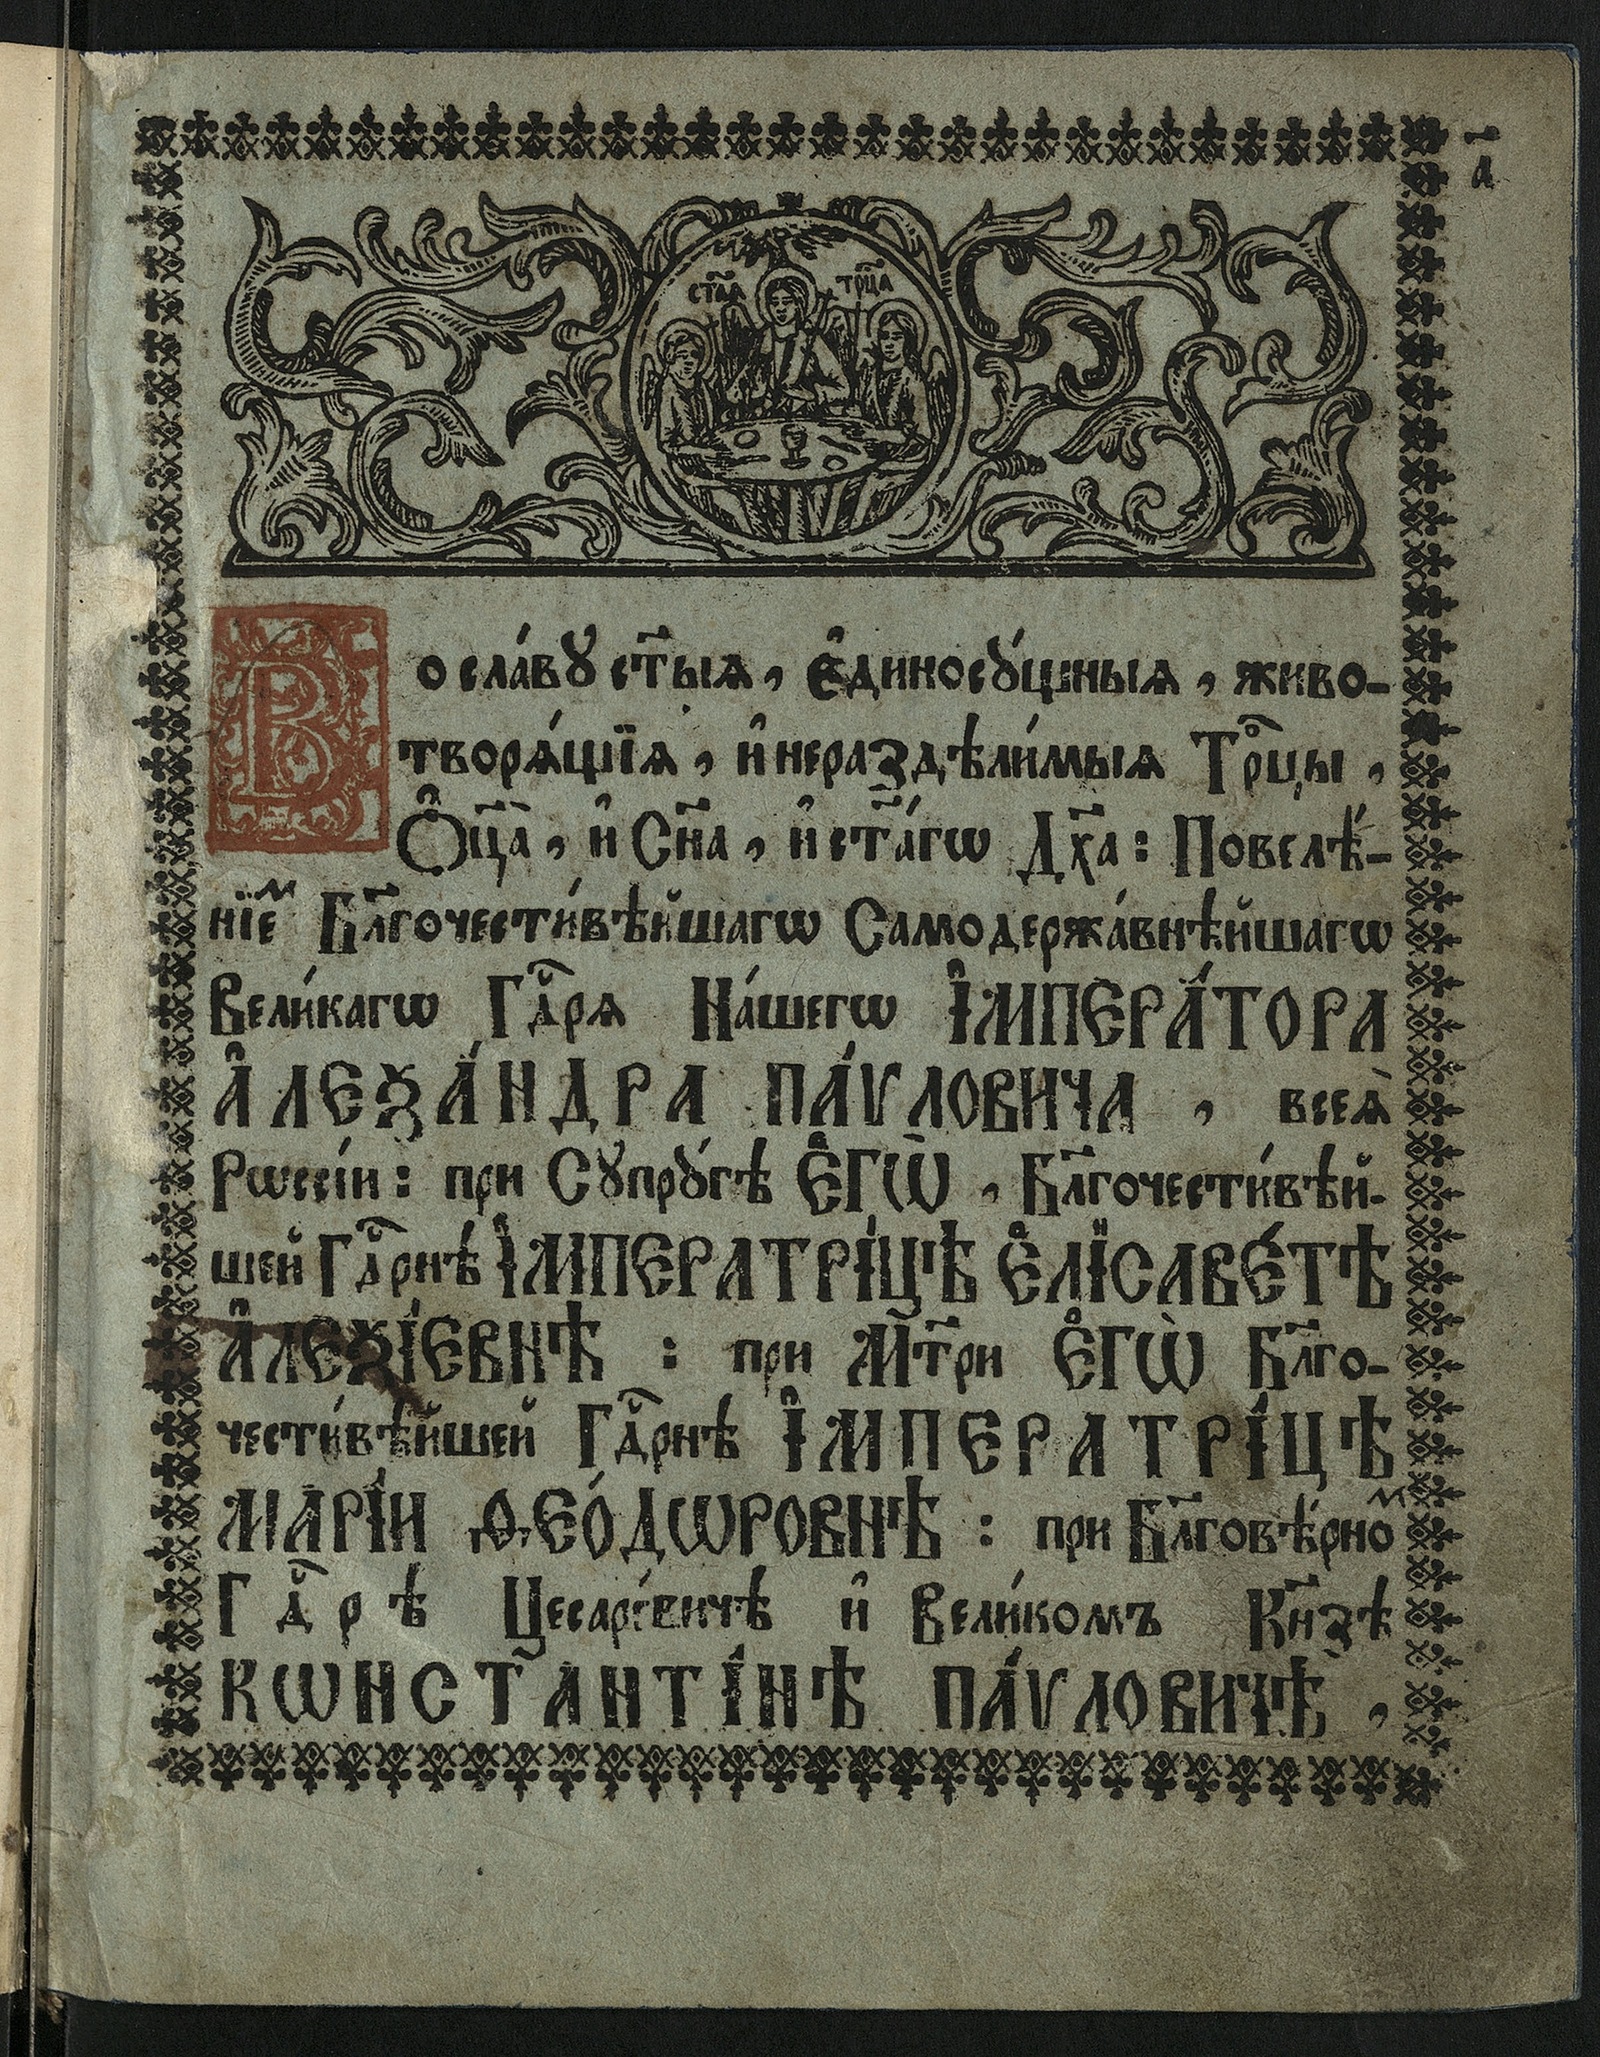 а҃
ст҃аѧ трⷪ҇ца
Во сла́вꙋ ст҃ы́ѧ, є҆диносꙋ́щныѧ, живо-
творѧ́щїѧ, и҆ нераздѣли́мыѧ Трⷪ҇цы,
Ѻ҆ц҃а̀, и҆ Сн҃а, и҆ ст҃а́гѡ Дх҃а: Повелѣ́-
нїеⷨ Бл҃гочести́вѣйшагѡ Самодержа́внѣйшагѡ
Вели́кагѡ Гдⷭ҇рѧ На́шегѡ І҆МПЕРА́ТОРА
А҆ЛЕѮА́НДРА ПА́ѴЛОВИЧА, всеѧ̀
Рѡссі́и: при Сꙋпрꙋ́гѣ Є҆ГѠ̀, Бл҃гочести́вѣй-
шей Гдⷭ҇рнѣ І҆МПЕРАТРІ́ЦѢ Є҆ЛІСАВЕ́ТѢ
А҆ЛЕѮІ́ЕВНѢ: при Мт҃ри Є҆ГѠ̀ Бл҃го-
чести́вѣйшей Гдⷭ҇рнѣ І҆МПЕРАТРІ́ЦѢ
МАРІ́И ѲЕО́ДѠРОВНѢ: при Бл҃говѣ́рноⷨ
Гдⷭ҇рѣ Цесаре́вичѣ и҆ Вели́комъ Кн҃зѣ
КѠНСТАНТІ́НѢ ПА́ѴЛОВИЧѢ,